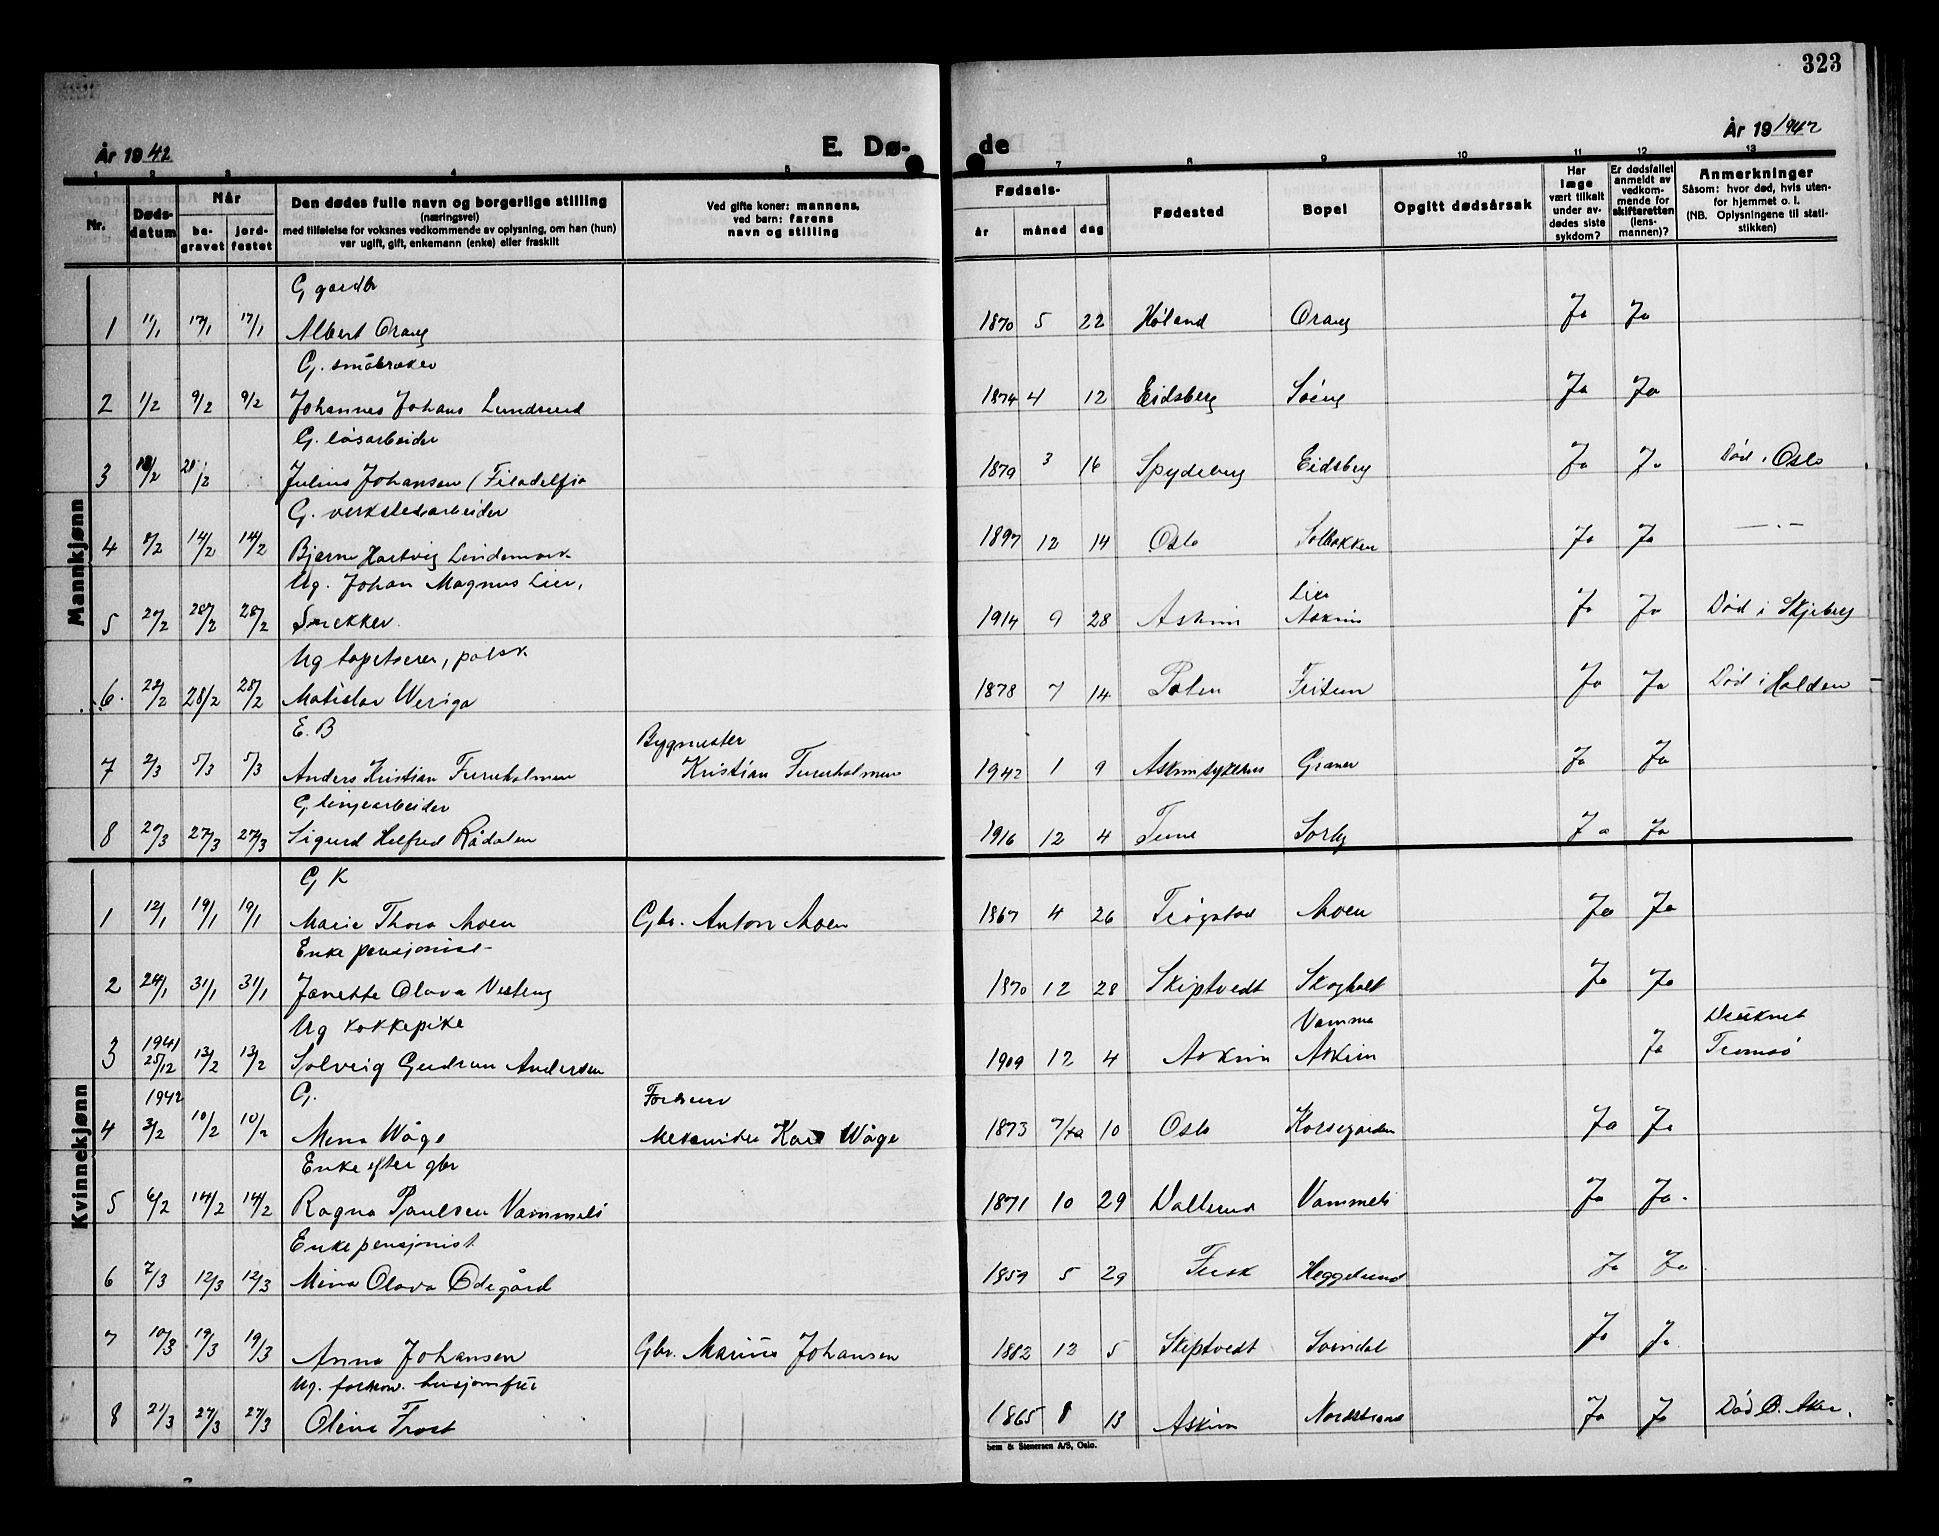 323
År 1942
E. Dø-
de
År 19 1942
1 2 3 4 5
7 8 9 10 11 12 13
Nr.
Døds-
datum
Når
be-
gravet
jord-
festet
Den dødes fulle navn og borgerlige stilling
(næringsvei)
med tilføielse for voksnes vedkommende av oplysning, om han (hun)
var ugift, gift, enkemann (enke) eller fraskilt
Ved gifte koner: mannens,
ved barn: farens
navn og stilling
Fødsels-
år måned dag
Fødested
Bopel
Opgitt dødsårsak
Har
læge
vært tilkalt
under av-
dødes siste
sykdom?
Er dødsfallet
anmeldt av
vedkom-
mende for
skifteretten
(lens-
mannen)?
Anmerkninger
Såsom: hvor død, hvis uten-
for hjemmet o. l.
(NB. Oplysningene til stati-
stikken)
Mannkjønn
G gardbr
1 11/1 17/1 17/1 Albert Oraug 1870 5 22 Høland Oraug Ja Ja
G. småbruker
2 1/2 9/2 9/2 Johannes Johans Lundsrud 1874 4 12 Eidsberg Ja Ja
G. løsarbeider
3 18/2 21/2 Julius Johansen (Filadelfia 1879 3 16 Spydeberg Eidsberg Ja Ja Død i Oslo
G. verkstedsarbeider
4 8/2 14/2 14/2 Bjarne Hartvig Lindemark 1897 12 14 Oslo Solbakken Ja Ja —.—
Ug. Johan Magnus Lier,
Lier
5 20/2 28/2 28/2 Snekker. 1914 9 28 Askim Askim Ja Ja Død i Skjeberg
Ug tapetserer, polsk
6. 22/2 28/2 28/2 Matislav Weriga 1878 7 14 Polen Fritun Ja Ja Død i Halden
E. B
Bygmester
7 2/3 5/3 5/3 Anders Kristian Furuholmen Kristian Furuholmen 1942 1 9 Askim sykehus Graner Ja Ja
G linjearbeider
8 20/3 27/3 27/3 Sigurd Helfred Rådalen 1916 12 4 Tune Sorby Ja Ja
Kvinnekjønn
G K
1 12/1 19/1 19/1 Marie Thora Moen Gbr. Anton Moen 1867 4 26 Trøgstad Moen Ja Ja
Enke pensjonist
2 24/1 31/1 31/1 Janette Olava Vesteng 1870 12 28 Skiptvedt Skogholt Ja Ja
Ug kokkepike
Vamma
Druknet
1941
3 25/12 13/2 13/2 Solveig Gudrun Andersen 1909 12 4 Askim Askim Ja Tromsø
1942 G.
4 3/2 10/2 10/2 Mina Wåge Mekaniker Karl Wåge 1873 7 10 Oslo Korsegården Ja Ja
Enke efter gbr
5 6/2 14/2 14/2 Ragna Paulsen Vammeli 1871 10 29 Vallerud Vammeli Ja Ja.
Enke pensjonist
6 7/3 12/3 12/3 Mina Olava Ødegård 1859 5 29 Fusk Heggelund Ja Ja
7 10/3 19/3 19/3 Anna Johansen Gbr. Marius Johansen 1882 12 5 Skiptvedt Svindal Ja Ja
Ug. forhenv.
8 21/3 27/3 27/3 Oline Frost 1865 8 13 Askim Nordstrand Ja Ja Død Ø. Aker.
& Stenersen A/S, Oslo.